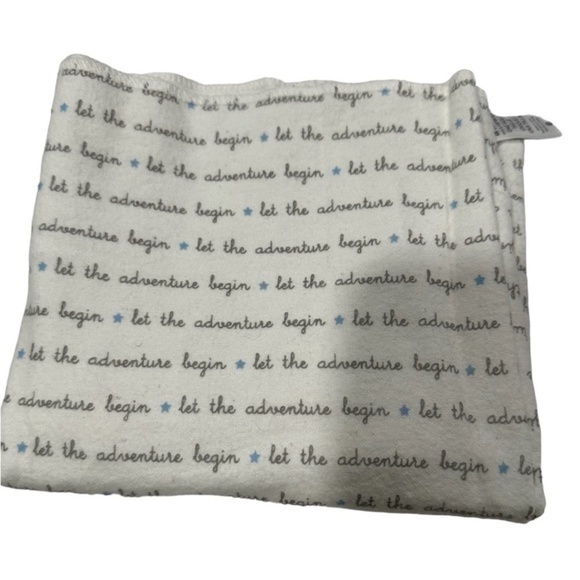 adventure begin ★ let the adventure begin ★ let the
★ let the adventure begin ★ let the adventure begin ★
begin ★ let the adventure begin ★ let the adventure
★ let the adventure begin ★ let the adventure begin ★ let
adventure begin ★ let the adventure begin ★ let the
★ let the adventure begin ★ let the adventure begin ★
begin ★ let the adventure begin ★ let the adventure
★ let the adventure begin ★ let the adventure begin ★ let
adventure begin ★ let the adventure begin ★ let the
★ let the adventure begin ★ let the adventure begin ★
begin ★ let the adventure